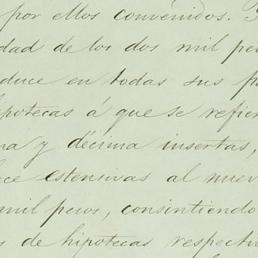 por ellos convenidos.
dad de los dos mil pe
duce en todas sus p
ipotecas á que se refier
na y décima insertas,
ce estensivas al nuev
mil pesos, consintiendo
s de hipotecas respectiv